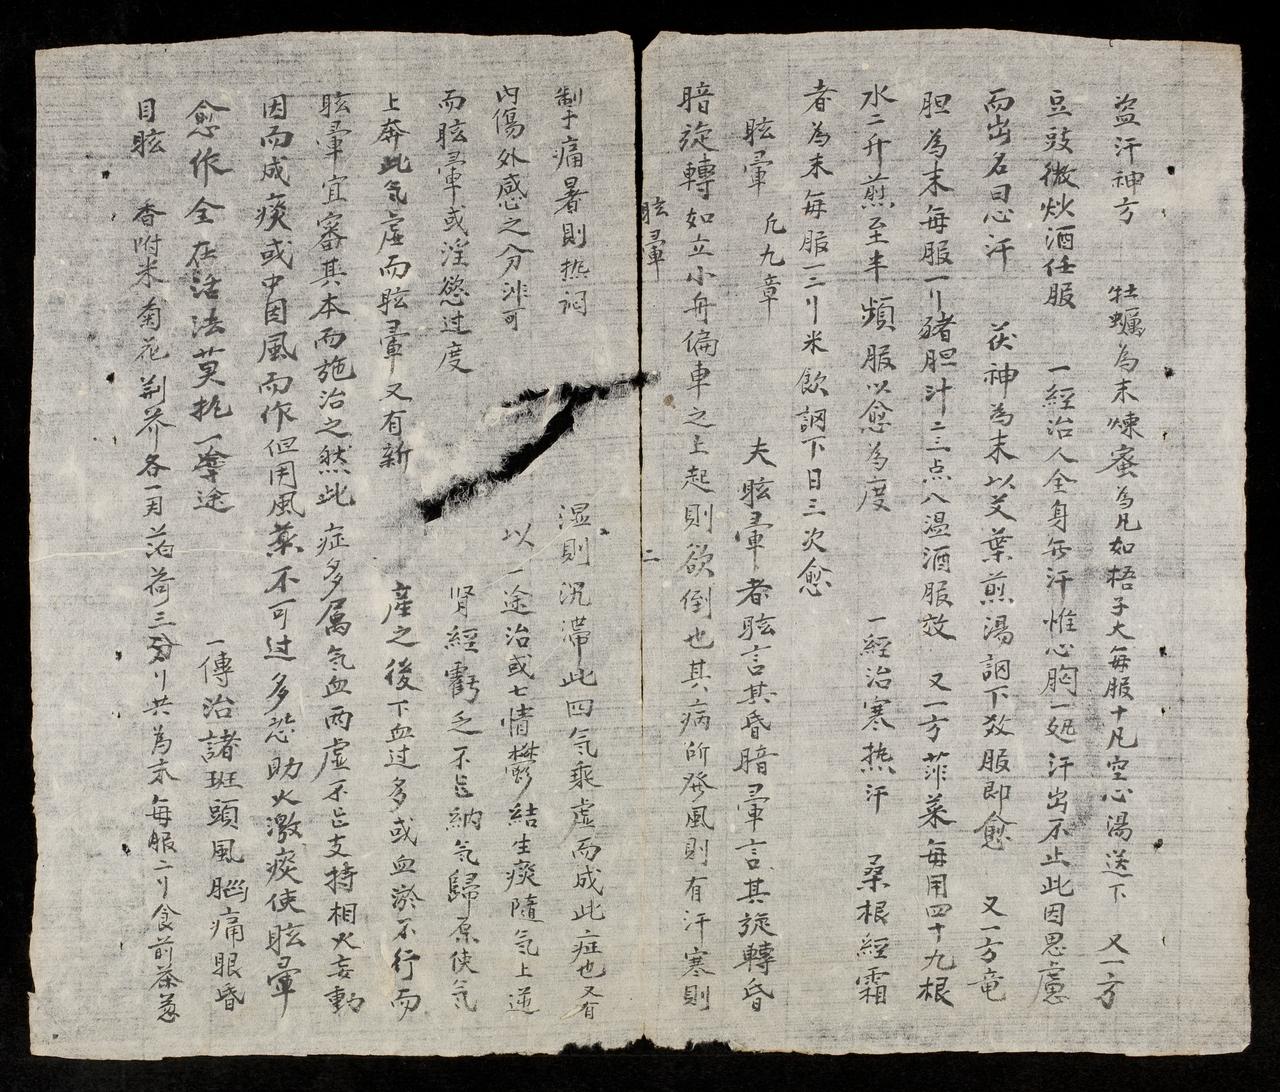 盗汗神方 牡蠣為末煉蜜為凡如梧子大每服十凡空心湯送下 又一方
豆豉微炒酒任服 一經治人全身無汗惟心胸一処汗出不止此因思慮
而出名曰心汗 茯神為末以艾葉煎湯調下数服即愈 又一方竜
胆為末每服一刂豬胆汁二三点入温酒服效 又一方菲菜每用四十九根
水二升煎至半頻服以愈為度 一經治寒热汗 桑根經霜
者為末每服一二刂米飲調下日三次愈
眩暈 凡九章 夫眩暈者眩言其昏暗暈言其旋轉昏
暗旋轉如立小舟偏車之上起則欲倒也其病所發風則有汗寒則
眩暈 二
掣痛暑則热闷 湿則沉滞此四気乘虚而成此症也又有
内傷外感之分 可 以一途治或七情欝結生痰隨気上逆
而眩暈或淫慾过度 肾經虧乏不能納気歸原使気
上奔此気虚而眩暈又有新 産之後下血过多或血淤不行而
眩暈宜審其本而施治之然此症多属気血两虚不能支持相火妄動
因而成痰或中因風而作但用風薬不可过多恐助火激痰使眩暈
愈作全在活法莫执一途 一傳治諸斑頭風腦痛眼昏
目眩 香附米菊花荆芥各一両荷三分刂共為末每服二刂食前茶葱